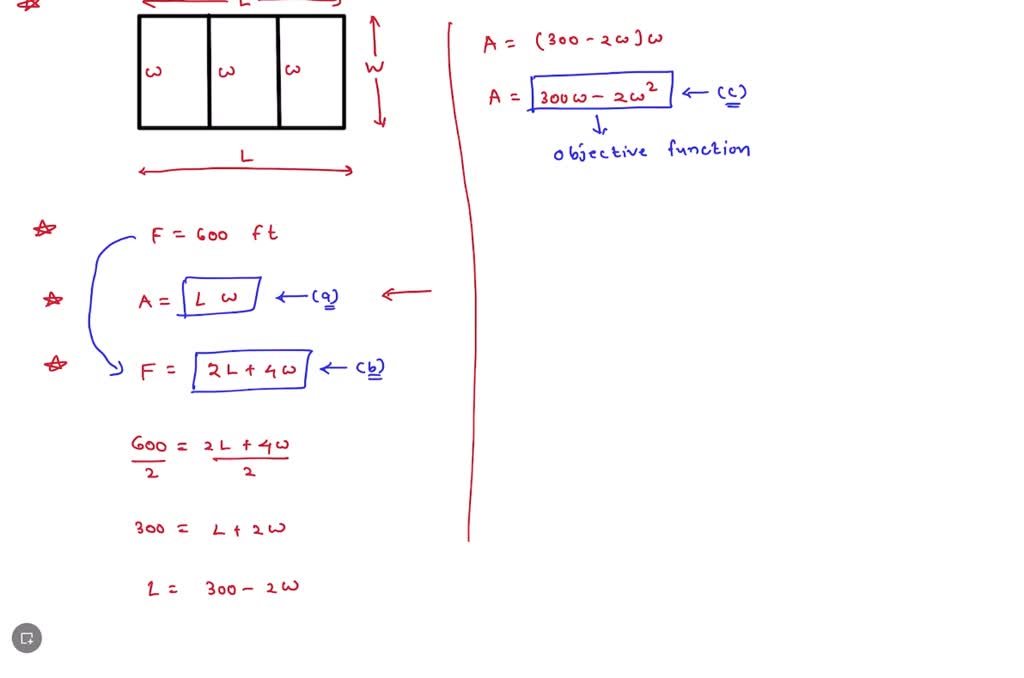 L
ω ω ω W
L
F = 600 ft
A = L ω ← (a) ←
F = 2L + 4ω ← (b)
600/2 = 2L + 4ω/2
300 = L + 2ω
L = 300 - 2ω
A = (300 - 2ω)ω
A = 300ω - 2ω² ← (c)
objective function